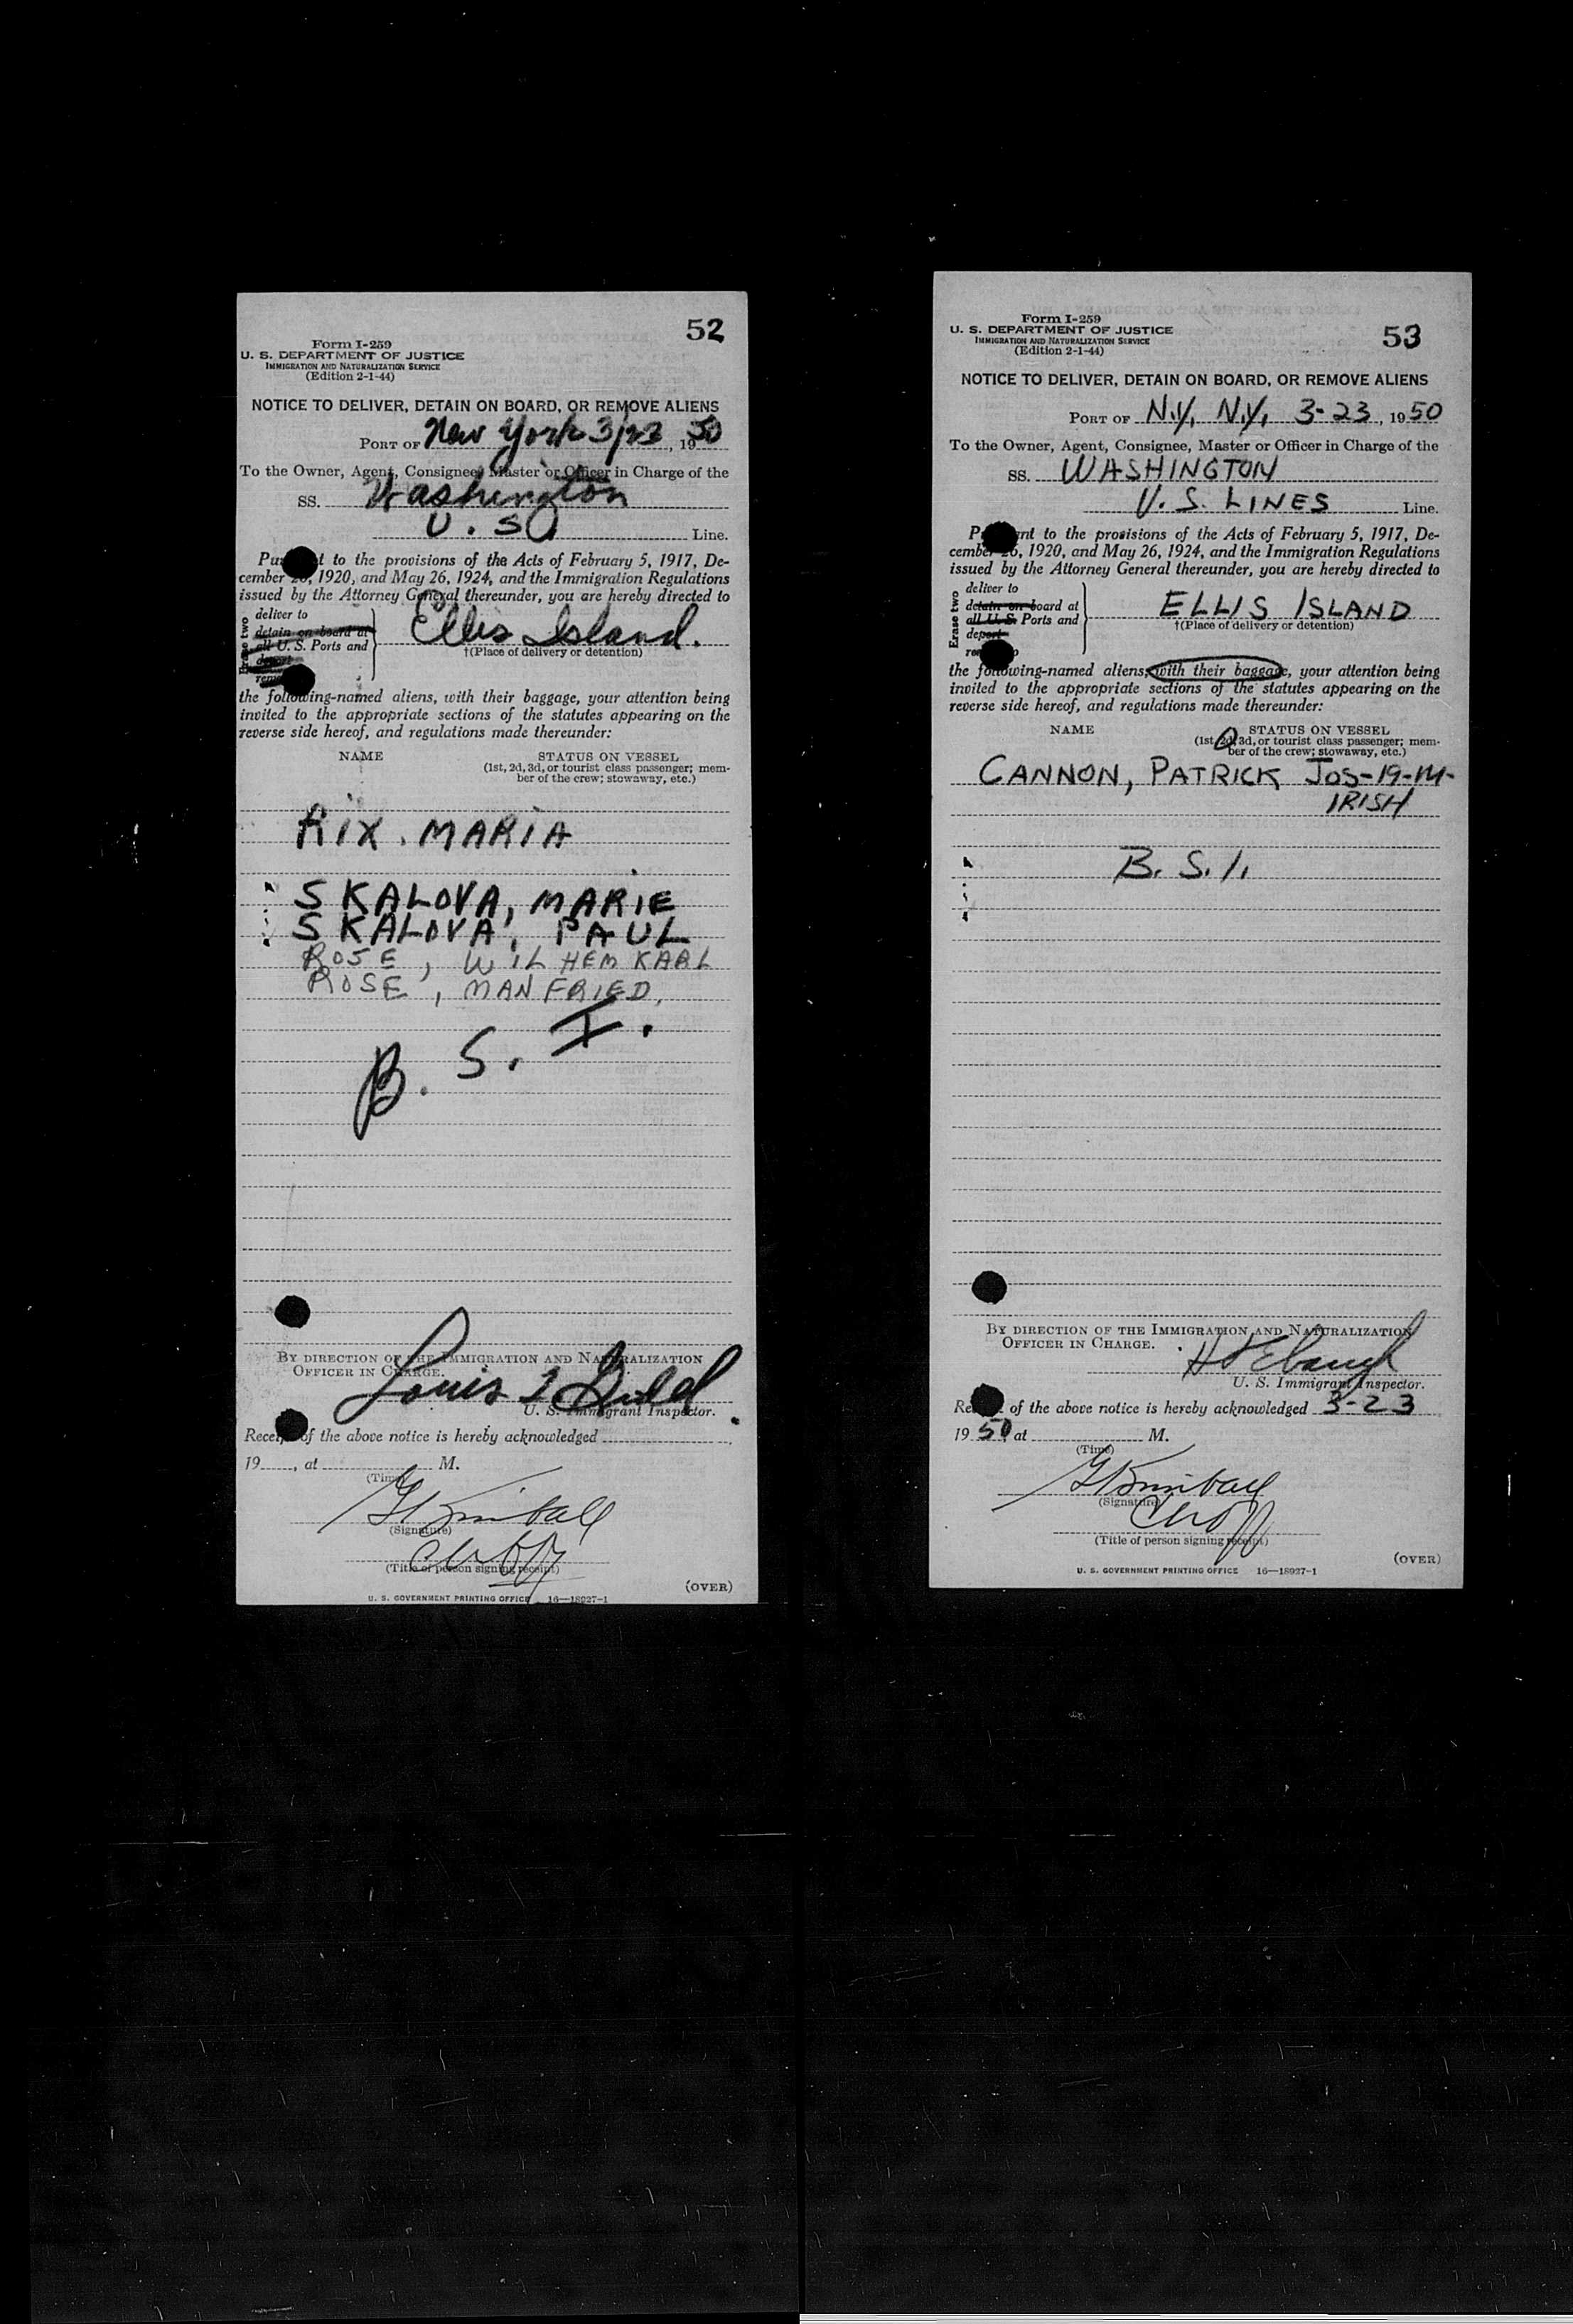 52
Form I-259
U. S. DEPARTMENT OF JUSTICE
IMMIGRATION AND NATURALIZATION SERVICE
(Edition 2-1-44)
NOTICE TO DELIVER, DETAIN ON BOARD, OR REMOVE ALIENS
PORT OF New York 3/23, 1950
To the Owner, Agent, Consignee, Master or Officer in Charge of the
SS. Washington
U. S. Line.
Pursuant to the provisions of the Acts of February 5, 1917, De-
cember 26, 1920, and May 26, 1924, and the Immigration Regulations
issued by the Attorney General thereunder, you are hereby directed to
Erase two
deliver to
detain on board at
all U. S. Ports and
deport
Ellis Island.
†(Place of delivery or detention)
the following-named aliens, with their baggage, your attention being
invited to the appropriate sections of the statutes appearing on the
reverse side hereof, and regulations made thereunder:
NAME STATUS ON VESSEL
(1st, 2d, 3d, or tourist class passenger; mem-
ber of the crew; stowaway, etc.)
RIX. MARIA
SKALOVA, MARIE
SKALOVA, PAUL
ROSE, WILHEM KARL
ROSE, MANFRIED.
B. S. I.
BY DIRECTION OF THE IMMIGRATION AND NATURALIZATION
OFFICER IN CHARGE.
Louis
U. S. Immigrant Inspector.
Receipt of the above notice is hereby acknowledged
19 , at M.
(Time)
G Kimball
(Signature)
(Title of person signing receipt)
(OVER)
U. S. GOVERNMENT PRINTING OFFICE 16—18927-1
53
Form I-259
U. S. DEPARTMENT OF JUSTICE
IMMIGRATION AND NATURALIZATION SERVICE
(Edition 2-1-44)
NOTICE TO DELIVER, DETAIN ON BOARD, OR REMOVE ALIENS
PORT OF N.Y. N.Y. 3-23, 1950
To the Owner, Agent, Consignee, Master or Officer in Charge of the
SS. WASHINGTON
U. S. LINES Line.
Pursuant to the provisions of the Acts of February 5, 1917, De-
cember 26, 1920, and May 26, 1924, and the Immigration Regulations
issued by the Attorney General thereunder, you are hereby directed to
Erase two
deliver to
detain on board at
all U. S. Ports and
deport
ELLIS ISLAND
†(Place of delivery or detention)
the following-named aliens, with their baggage, your attention being
invited to the appropriate sections of the statutes appearing on the
reverse side hereof, and regulations made thereunder:
NAME STATUS ON VESSEL
(1st, 2d, 3d, or tourist class passenger; mem-
ber of the crew; stowaway, etc.)
CANNON, PATRICK JOS-19-M-
IRISH
B. S. I.
BY DIRECTION OF THE IMMIGRATION AND NATURALIZATION
OFFICER IN CHARGE.
U. S. Immigrant Inspector.
Receipt of the above notice is hereby acknowledged 3-23
1950 at M.
(Time)
G Kimball
(Signature)
(Title of person signing receipt)
(OVER)
U. S. GOVERNMENT PRINTING OFFICE 16—18927-1